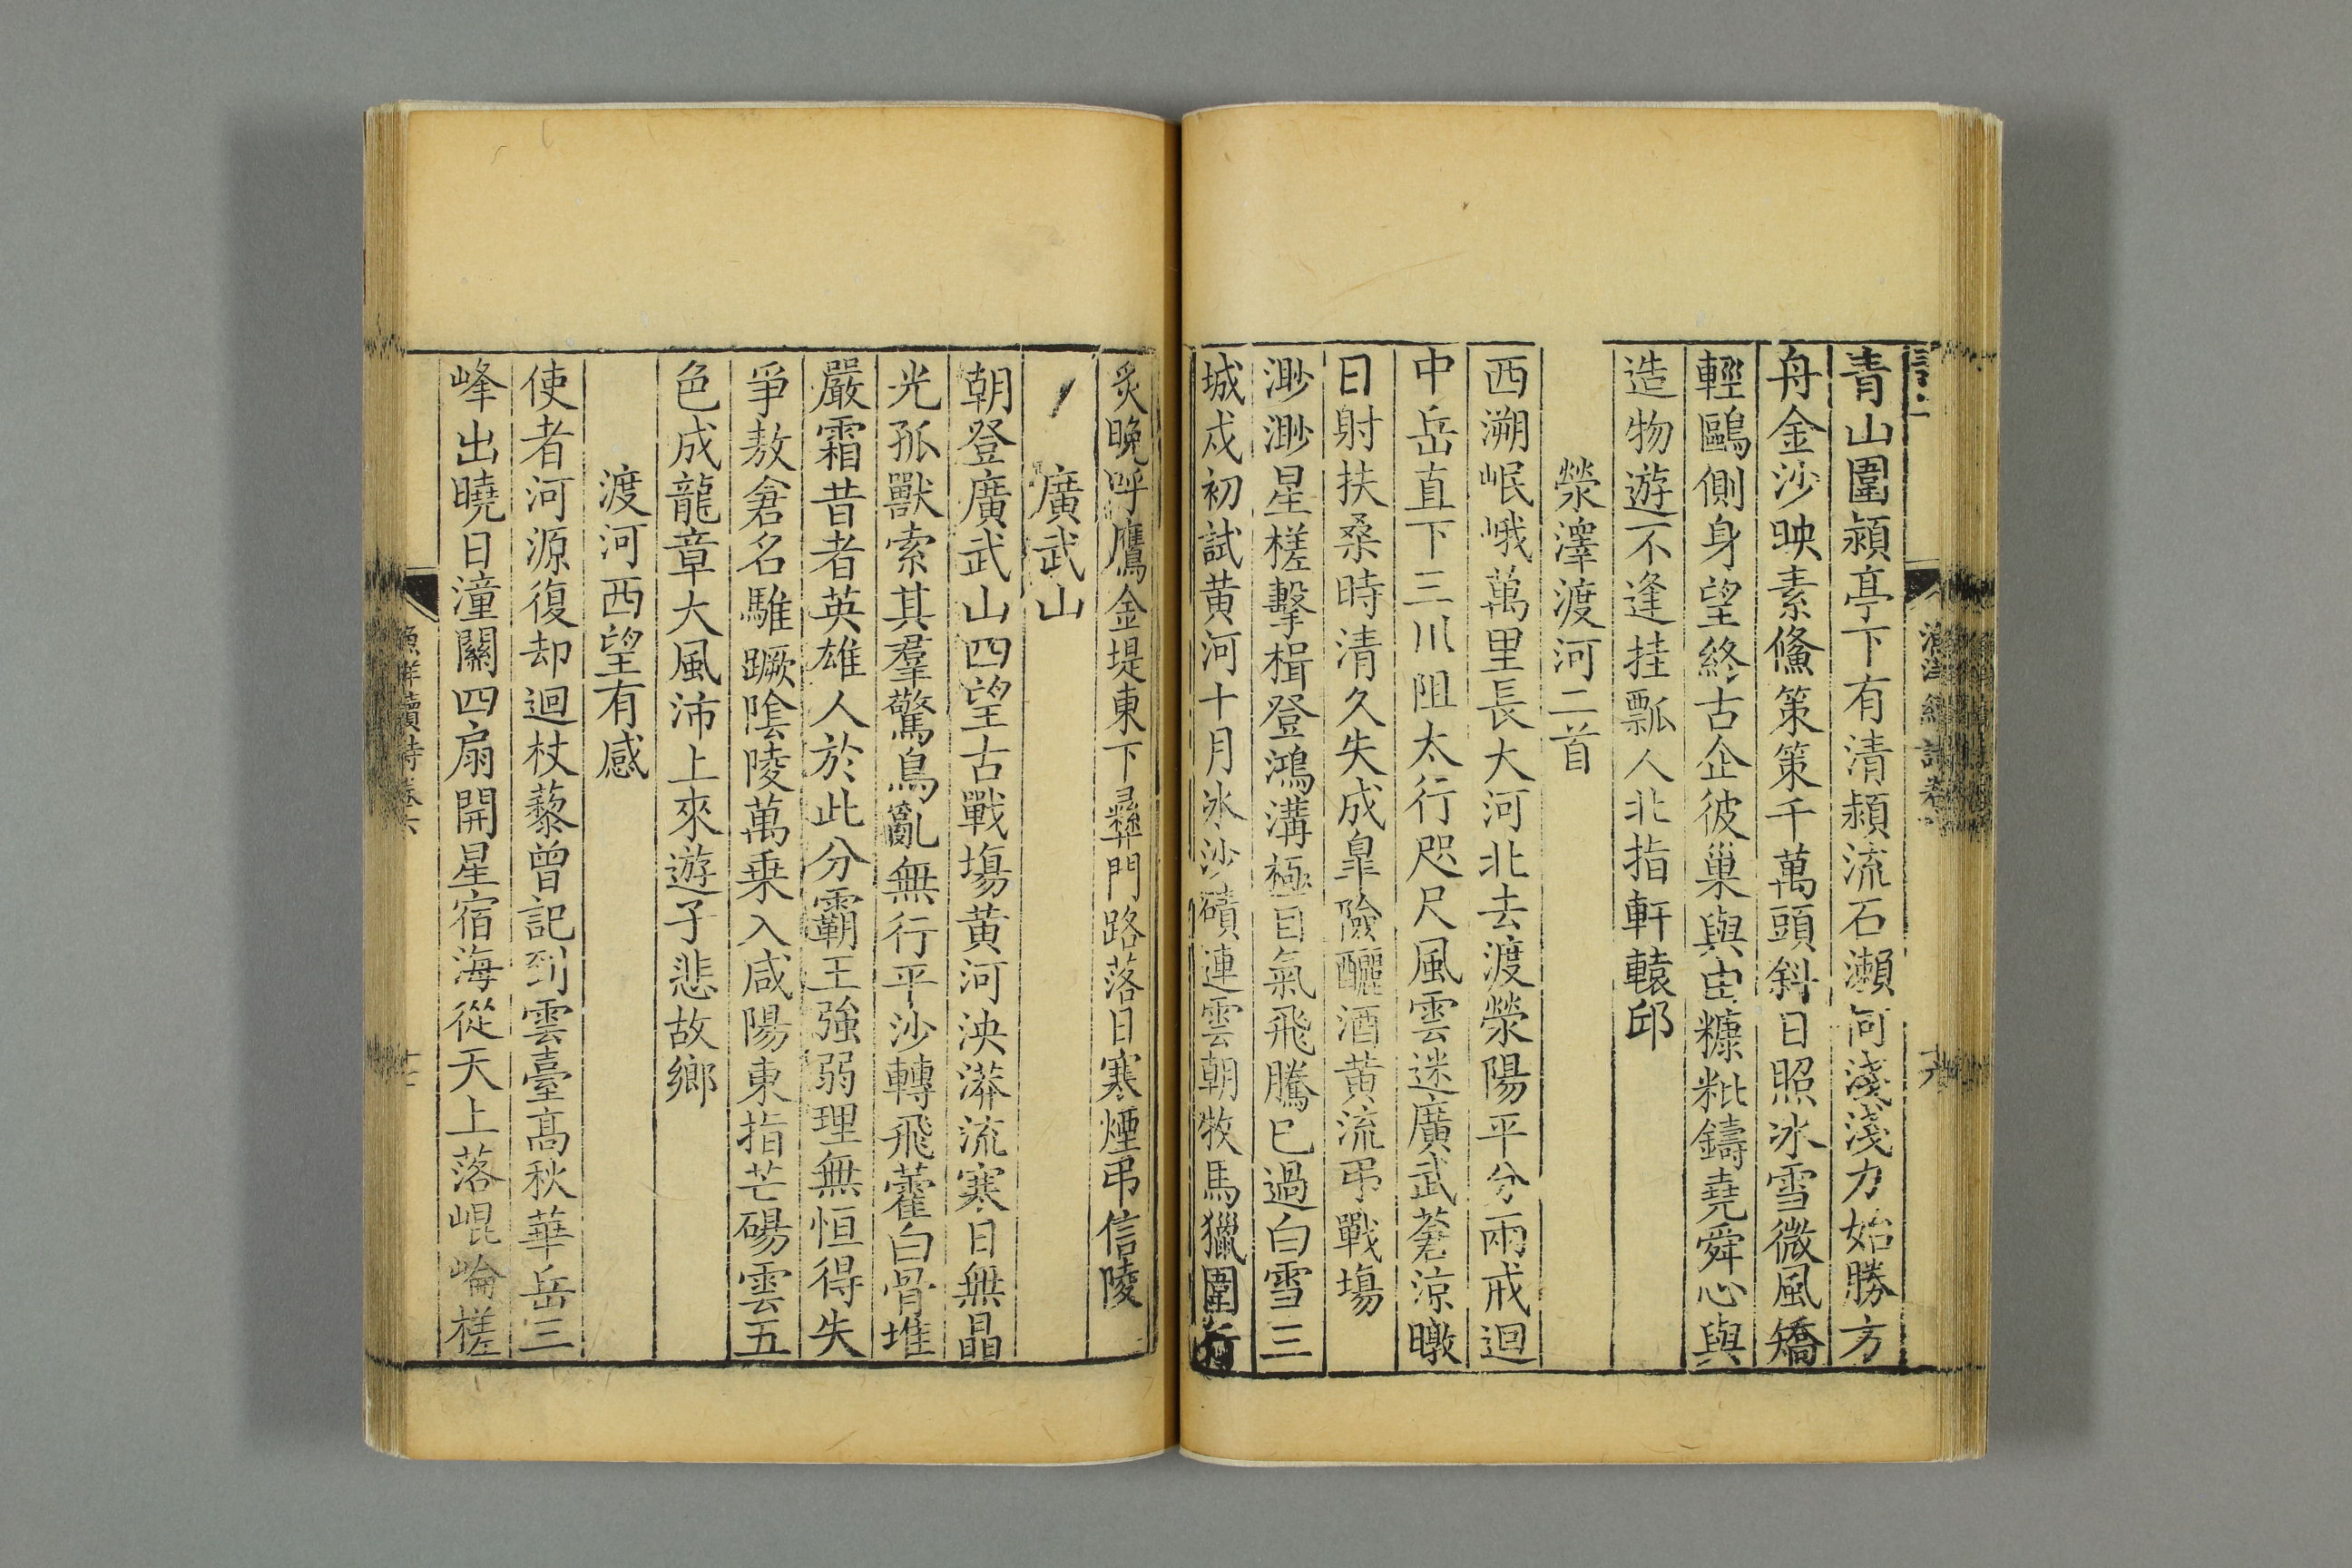 青山圍潁亭下有清潁流石瀨何淺淺力始勝方
舟金沙映素鯈策策千萬頭斜日照冰雪微風矯
輕鷗側身望終古企彼巢與由糠粃鑄堯舜心與
造物遊不逢挂瓢人北指軒轅邱
滎澤渡河二首
西溯岷峨萬里長大河北去渡滎陽平分兩戒迴
中岳直下三川阻太行咫尺風雲迷廣武蒼涼暾
日射扶桑時清久失成臯險釃酒黃流弔戰塲
渺渺星槎擊楫登鴻溝極目氣飛騰已過白雪三
城戍初試黃河十月冰沙磧連雲朝牧馬獵圍行
炙晚呼鷹金堤東下彞門路落日寒煙弔信陵
廣武山
朝登廣武山四望古戰塲黃河泱漭流寒日無晶
光孤獸索其羣驚鳥亂無行平沙轉飛藿白骨堆
嚴霜昔者英雄人於此分霸王強弱理無恒得失
爭敖倉名騅蹶陰陵萬乗入咸陽東指芒碭雲五
色成龍章大風沛上來遊子悲故鄉
渡河西望有感
使者河源復却迴杖藜曾記到雲臺高秋華岳三
峰出曉日潼關四扇開星宿海從天上落崐崘槎
漁洋續詩卷六